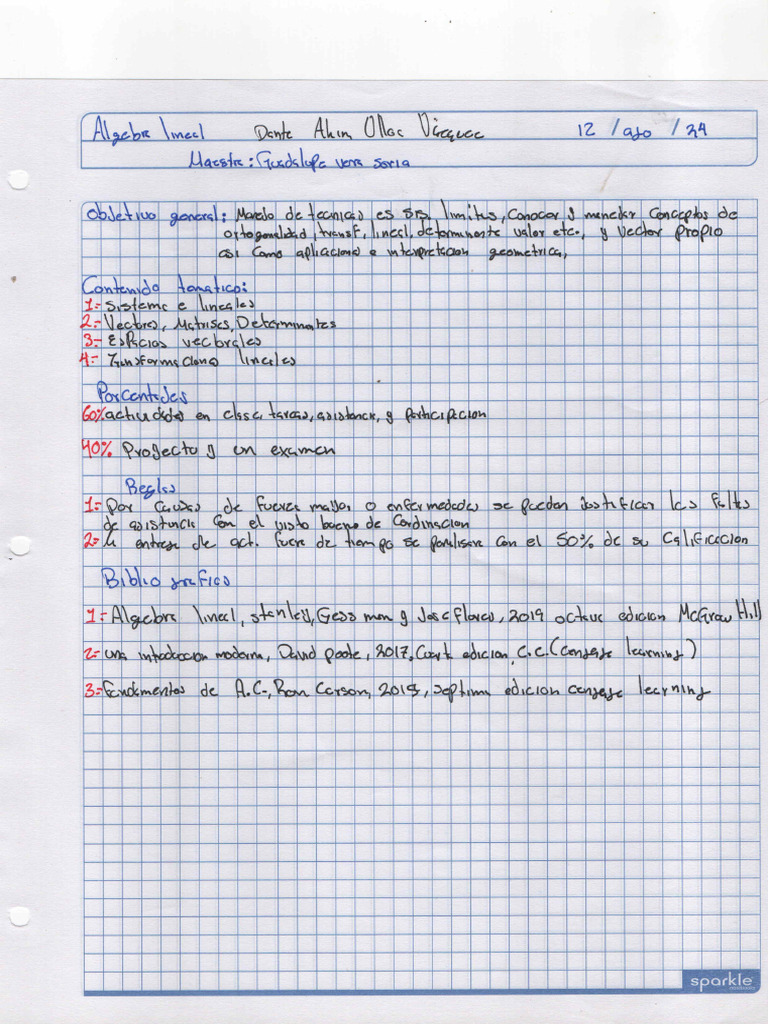 Algebra lineal Dante Ahin Olloa Vázquez 12 / ago / 24
Maestra: Guadalupe vera soria
Objetivo general: Manejo de tecnicas es sis. limites, Conocer y manejar Conceptos de
ortogonalidad, transf, lineal, determinante valor etc., y Vector Propio
asi Como aplicaciones e interpretacion geometrica,
Contenido tematico:
1- Sistema e lineales
2- Vectores, Matrises, Determinates
3- Espacios vectoriales
4- Transformaciones lineales
Porcentajes
60% actividades en clase, tareas, asistencia, y participacion
40% Proyecto y un examen
Reglas
1- Por causas de fuerza mallor o enfermedades se pueden justificar las faltas
de asistencia con el visto bueno de Cordinacion
2- la entrega de act. fuera de tiempo se penalisara con el 50% de su Calificacion
Bibliografias
1- Algebra lineal, stanley, Gessman y Jose flores, 2019 octava edicion McGraw Hill
2- una introduccion moderna, David poole, 2017, Cuart edicion, C.C. (cengage learning)
3- Fundamentos de A.C., Ron Carson, 2018, septima edicion cengage learning
sparkle